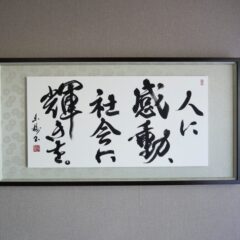 人に
感動、
社会に
輝きを。